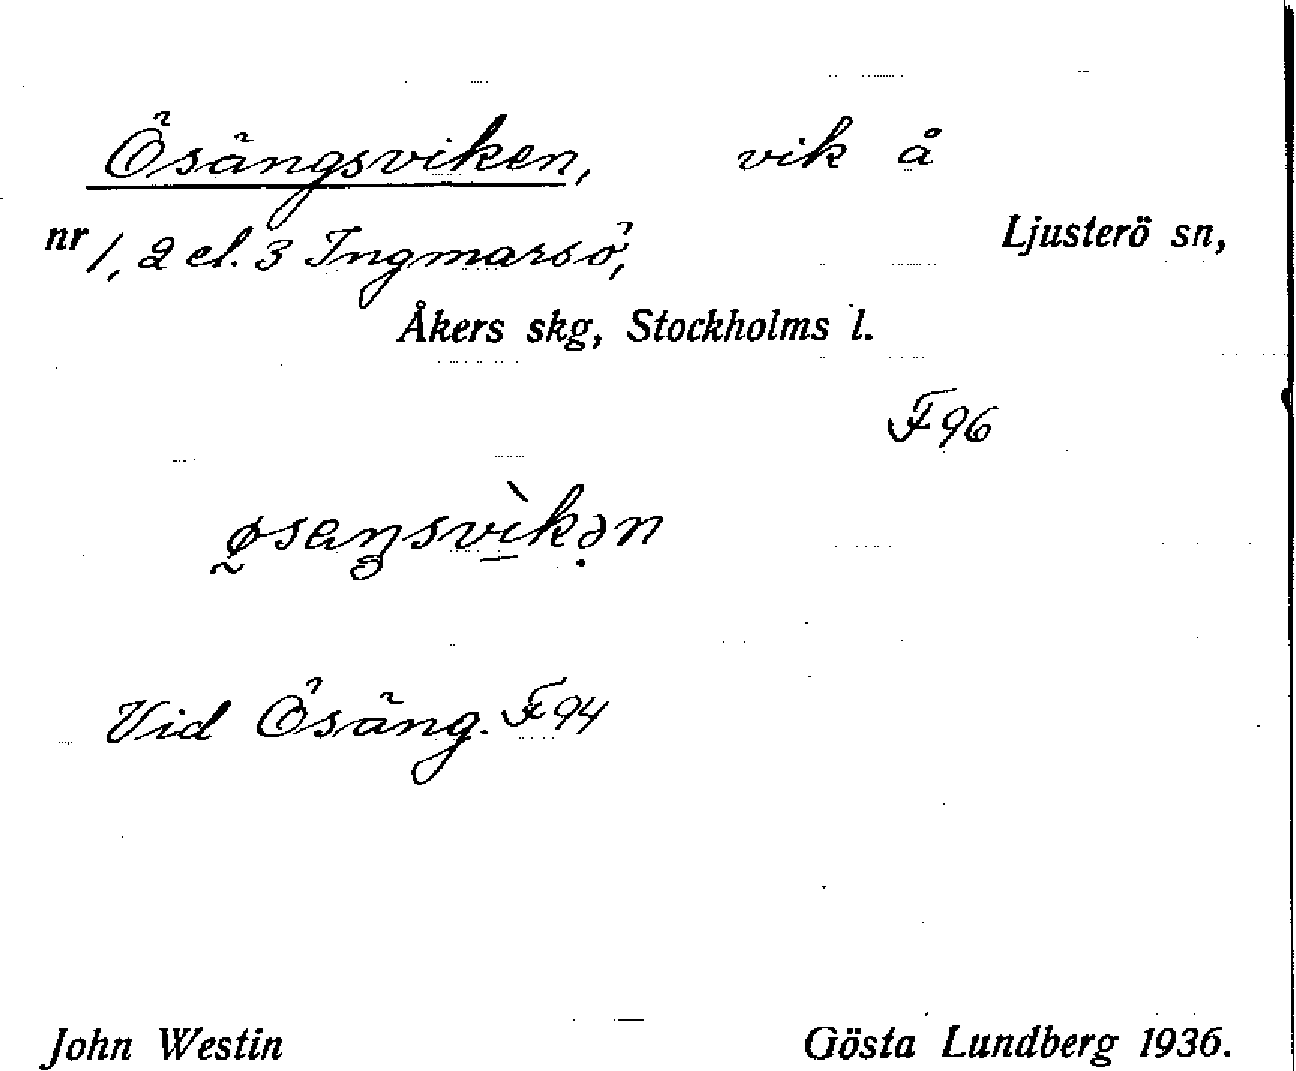 Ösängsviken, vik å
nr 1, 2 el. 3 Ingmarsö, Ljusterö sn,
Åkers skg, Stockholms l.
F 96
Vid Ösäng. F 94
John Westin Gösta Lundberg 1936.